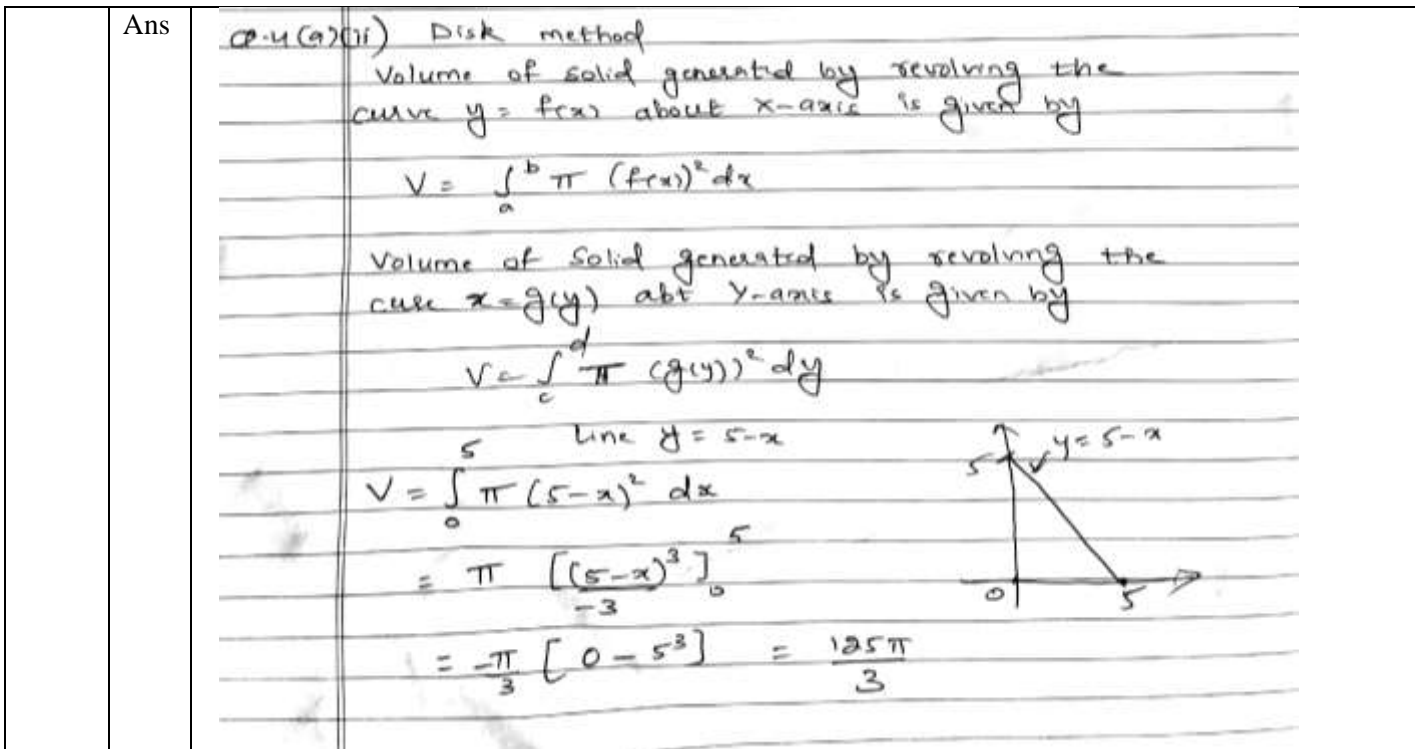 Ans
Q.4(a)(ii) Disk method
Volume of solid generated by revolving the
curve y = f(x) about x-axis is given by
V = ∫ₐᵇ π (f(x))² dx
Volume of solid generated by revolving the
curve x = g(y) abt Y-axis is given by
V = ∫꜀ᵈ π (g(y))² dy
Line y = 5-x
V = ∫₀⁵ π (5-x)² dx
= π [(5-x)³/-3]₀⁵
= -π/3 [0 - 5³] = 125π/3
y = 5-x
5
0
5